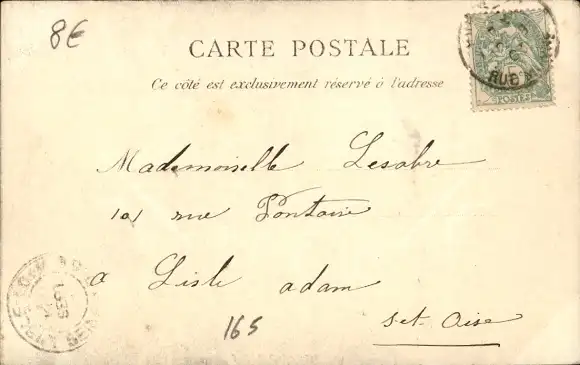 8€
CARTE POSTALE
Ce côté est exclusivement réservé à l'adresse
POSTES
RUE
Mademoiselle Lesabre
101 rue Pontoise
a Lisle adam
Set Oise
165